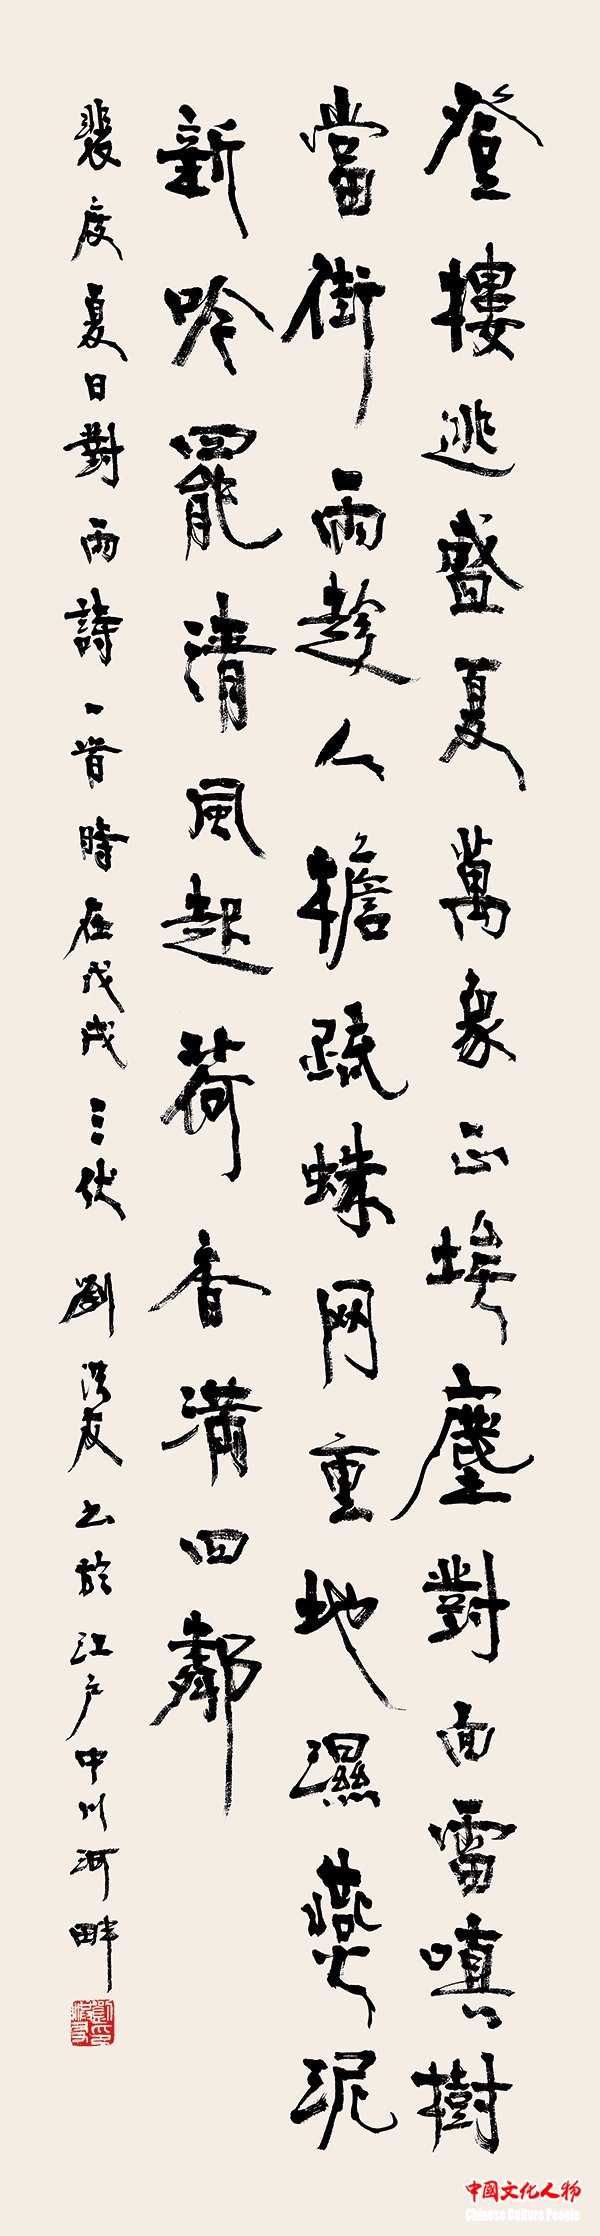 登樓逃盛夏萬象正埃塵對面雷嗔樹
當街雨趁人檐疏蛛网重地濕燕泥
新吟罷清風起荷香滿四鄰
裴度夏日對雨詩一首時在戊戌三伏 劉洪友书於江户中川河畔
中國文化人物
Chinese Culture People